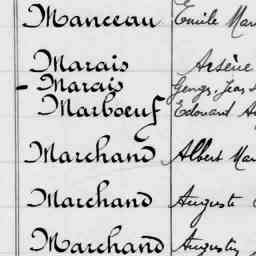 Manceau Emile Mar
Marais Arsène
- Marais Georges, Jean
Marboeuf Edouard A
Marchand Albert Mar
Marchand Auguste
Marchand Augustin